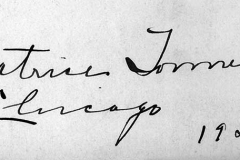 atrice Tonne
Chicago
190